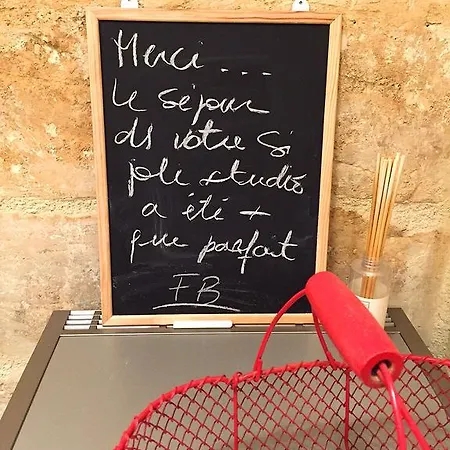 Merci ...
le séjour
ds votre si
joli studio
a été +
que parfait
FB